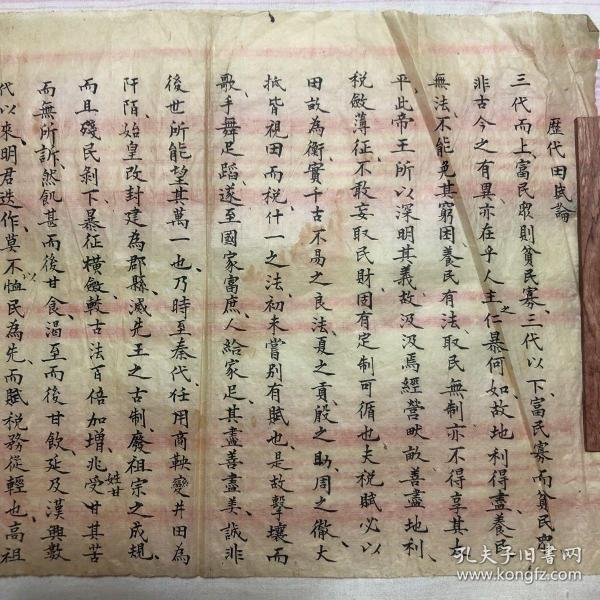 歷代田賦論
三代而上富民衆則貧民寡、三代以下、富民寡而貧民衆
非古今之有異、亦在乎人主之仁暴何如、故地利得盡、養民
無法、不能免其窮困、養民有法、取民無制、亦不得享其太
平、此帝王所以深明其義、故汲汲焉經營畎畝、善盡地利、
税斂薄征、不敢妄取民財、固有定制可循也、夫税賦必以
田畝為衡、實千古不易之良法、夏之貢、殷之助、周之徹、大
抵皆視田而税、什一之法、初未嘗別有賦也、是故擊壤而
歌、手舞足蹈、遂至國家富庶、人給家足、其盡善盡美、誠非
後世所能望其萬一也、乃時至秦代、任用商鞅、變井田為
阡陌、始皇改封建為郡縣、滅先王之古制、廢祖宗之成規、
而且殘民剥下、暴征橫斂、較古法百倍加增、兆姓受甘其苦
而無所訴、然飢甚而後甘食、渴至而後甘飲、延及漢興數
代以來、明君迭作、莫不以恤民為先、而賦税務從輕也、高祖
孔夫子旧书网
www.kongfz.com